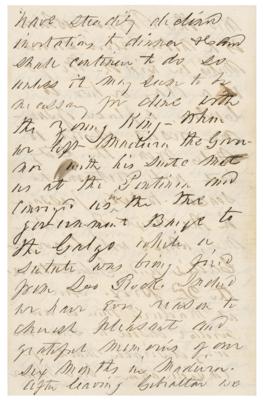 have steadily declined
invitations to dinner and
shall continue to do so
unless it may seem to be
necessary for dine with
the young King – When
we left Madeira the Gover-
nor with his suite met
us at the Pontinha and
conveyed us in the
government Barge to
the Galgo while a
salute was being fired
from Loo Rock. Indeed
we have every reason to
cherish pleasant and
grateful memories of our
six months in Madeira.
After leaving Gibraltar we